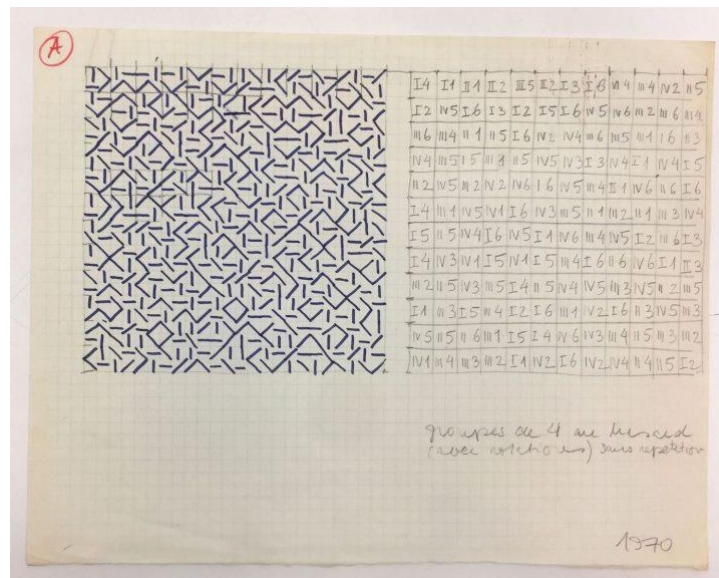 A
I4 I1 II1 II2 III5 II2 I3 I6 IV4 III4 IV2 II5
I2 IV5 I6 I3 I2 I5 I6 IV5 IV6 III2 III6 III4
III6 III4 II1 II5 I6 IV2 IV4 III6 III5 III1 I6 II3
IV4 III5 I5 III1 II5 IV5 IV3 I3 IV4 I1 IV4 I5
II2 IV5 III2 IV2 IV6 I6 IV5 III4 II1 IV6 II6 I6
I4 III1 IV5 IV1 I6 IV3 III5 II1 III2 II1 III3 IV4
I5 II5 IV4 I6 IV5 I1 IV6 III4 IV5 I2 III6 I3
I4 IV3 IV1 I5 IV1 I5 III4 I6 II6 IV6 I1 II3
III2 II5 IV3 III5 I4 II5 IV4 IV5 III3 IV5 II2 III5
I1 III3 I5 II4 I2 I6 III1 IV2 I6 II3 IV5 III3
IV5 II5 II6 III1 I5 I4 IV6 IV3 III4 II5 III3 III2
IV1 III4 III3 III2 I1 IV2 I6 IV2 IV4 II4 II5 I2
groupes de 4 au hasard
(avec rotations) sans repetition
1970